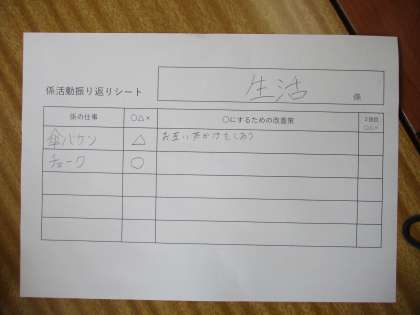 係活動振り返りシート
生活 係
係の仕事 ○△× ○にするための改善策 2回目 ○△×
傘ハケン △ お互い声かけをしあう
チョーク ○